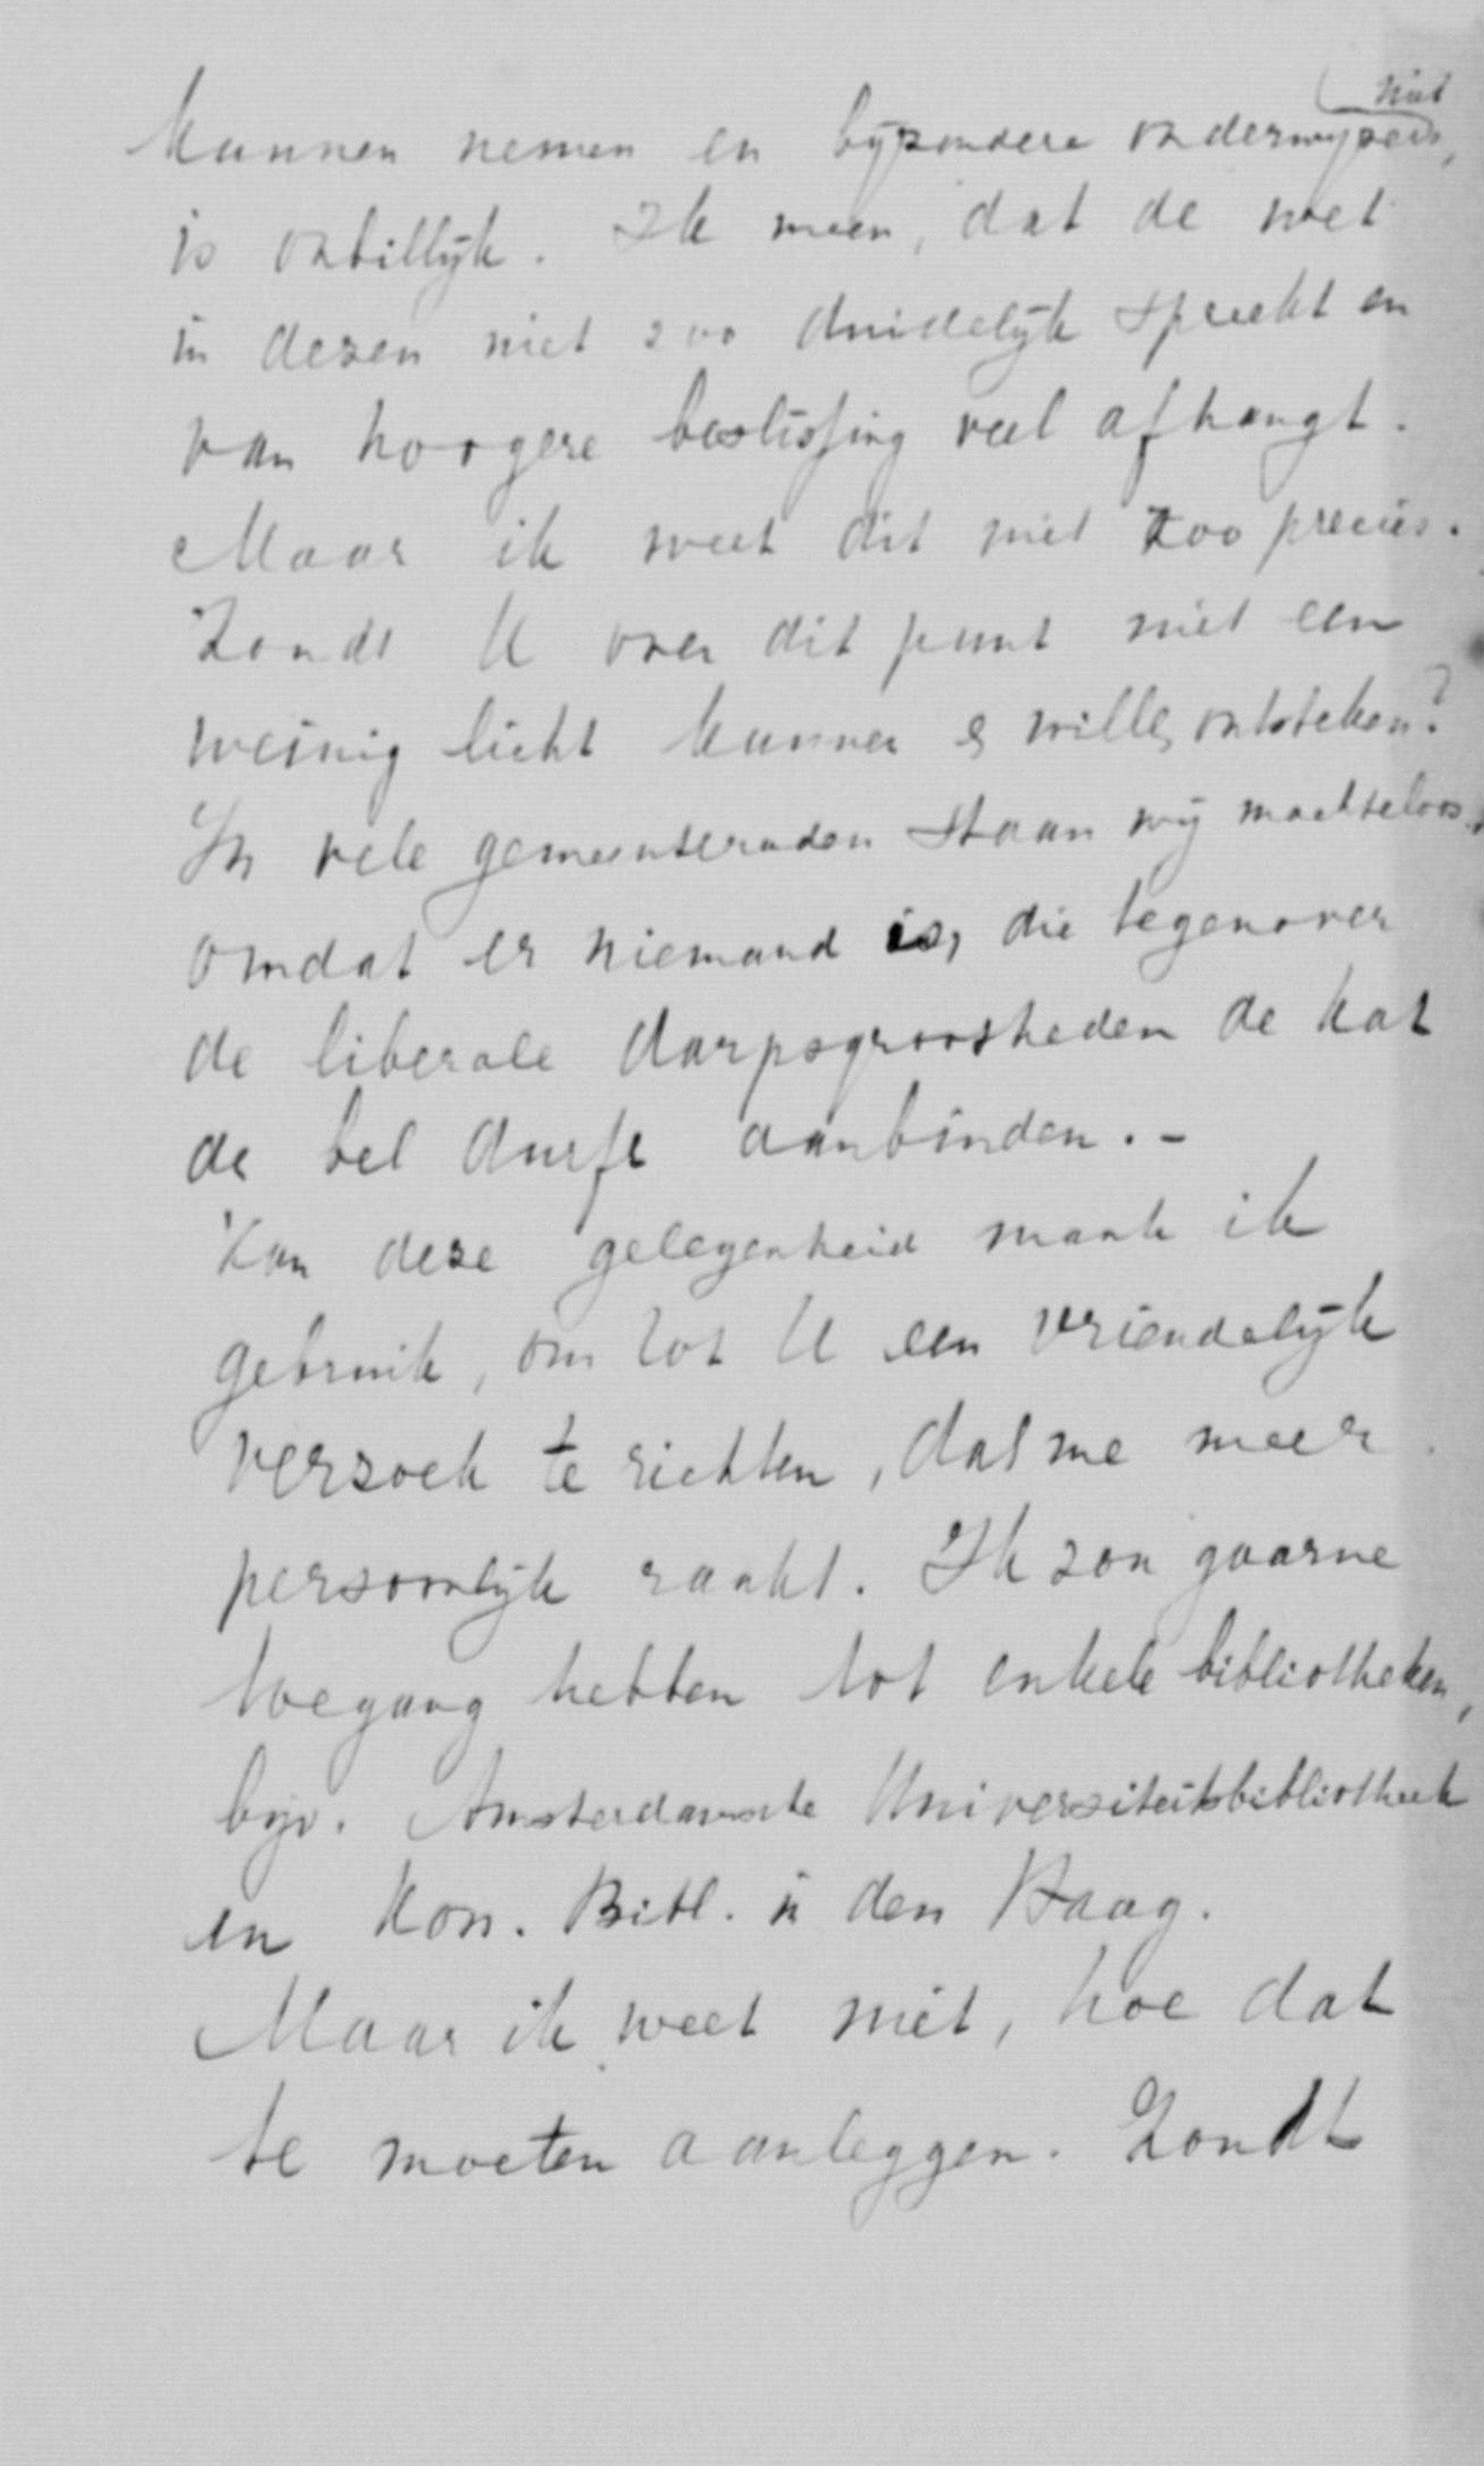 niet
kunnen nemen en byzondere onderwyzers,
is onbillyk. Ik meen, dat de wet
in dezen niet zoo duidelyk spreekt en
van hoogere beslissing veel afhangt.
Maar ik weet dit niet zoo precies.
Zoudt U over dit punt niet een
weinig licht kunnen & willen ontsteken?
In vele gemeenteraden staan wy machteloos,
omdat er niemand is, die tegenover
de liberale dorpsgrootheden de kat
de bel durft aanbinden. -
Van deze gelegenheid maak ik
gebruik, om tot U een vriendelyk
verzoek te richten, dat me meer
persoonlyk raakt. Ik zou gaarne
toegang hebben tot enkele bibliotheken,
byv. Amsterdamsche Universiteitsbibliotheek
en Kon. Bibl. in den Haag.
Maar ik weet niet, hoe dat
te moeten aanleggen. Zoudt